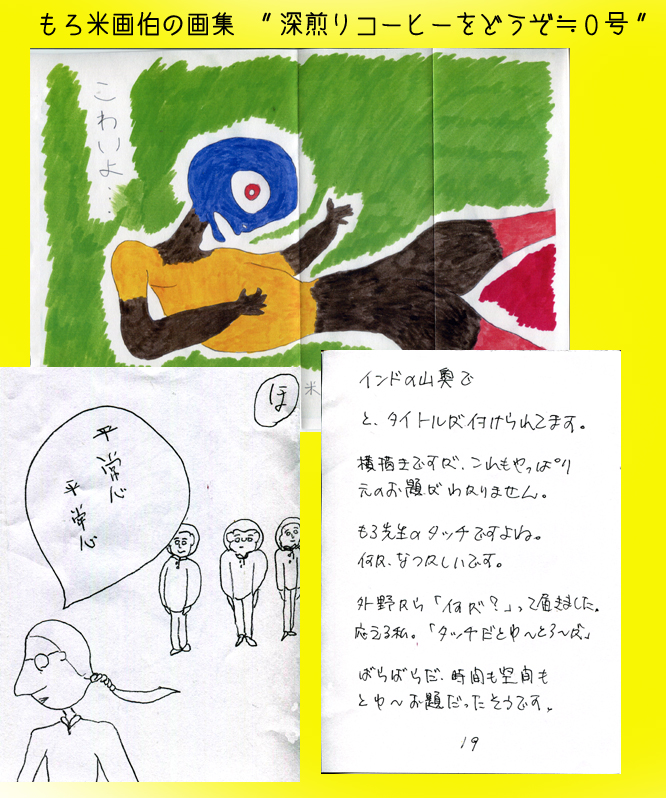 もろ米画伯の画集 〃深煎りコーヒーをどうぞ≒０号〃
こわいよ・・・
米
ほ
平常心
平常心
インドの山奥で
と、タイトルが付けられてます。
横描きですが、これもやっぱり
元のお題がわかりません。
もろ先生のタッチですよね。
何か、なつかしいです。
外野から「何が?」って届きました。
応える私。「タッチだとゆ〜とろ〜が」
ばらばらだ、時間も空間も
とゆ〜お題だったそうです。
19